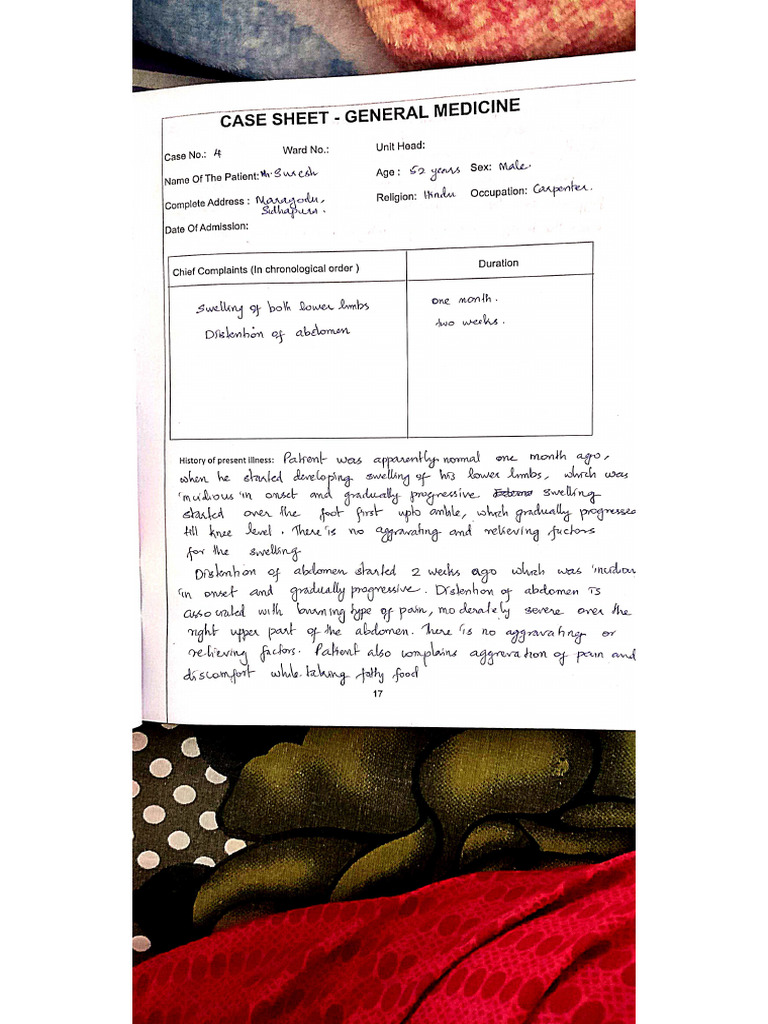 CASE SHEET - GENERAL MEDICINE
Case No.: 4 Ward No.: Unit Head:
Name Of The Patient: Mr. Suresh Age : 52 years Sex: Male.
Complete Address : Religion: Hindu Occupation: Carpenter.
Date Of Admission:
Chief Complaints (In chronological order ) Duration
Swelling of both lower limbs one month.
Distention of abdomen two weeks.
History of present illness: Patient was apparently normal one month ago,
when he started developing swelling of his lower limbs, which was
insidious in onset and gradually progressive. swelling
started over the foot first upto ankle, which gradually progressed
till knee level. There is no aggravating and relieving factors
for the swelling
Distention of abdomen started 2 weeks ago which was insidious
in onset and gradually progressive. Distention of abdomen is
associated with burning type of pain, moderately severe over the
right upper part of the abdomen. There is no aggravating or
relieving factors. Patient also complains aggrevation of pain and
discomfort while taking fatty food
17